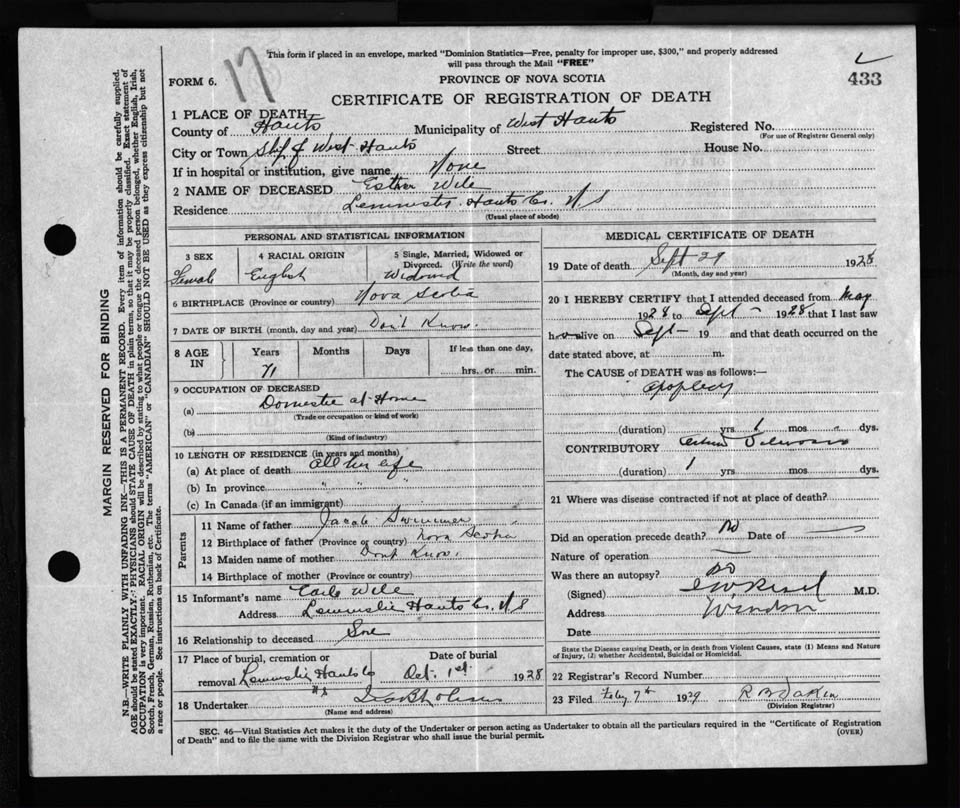 This form if placed in an envelope, marked "Dominion Statistics—Free, penalty for improper use, $300," and properly addressed
will pass through the Mail "FREE"
FORM 6. 17
PROVINCE OF NOVA SCOTIA
433
CERTIFICATE OF REGISTRATION OF DEATH
1 PLACE OF DEATH
County of Hants Municipality of West Hants Registered No.
(For use of Registrar General only)
City or Town West Hants Street House No.
If in hospital or institution, give name None
2 NAME OF DECEASED Esther Wile
Residence Hants Co. N S
(Usual place of abode)
PERSONAL AND STATISTICAL INFORMATION
3 SEX 4 RACIAL ORIGIN 5 Single, Married, Widowed or
Divorced. (Write the word)
Female English Widowed
6 BIRTHPLACE (Province or country) Nova Scotia
7 DATE OF BIRTH (month, day and year) Don't Know.
8 AGE IN Years Months Days If less than one day,
71 hrs. or min.
9 OCCUPATION OF DECEASED
(a) Domestic at Home
(Trade or occupation or kind of work)
(b)
(Kind of industry)
10 LENGTH OF RESIDENCE (in years and months)
(a) At place of death all her life
(b) In province " " "
(c) In Canada (if an immigrant)
Parents
11 Name of father Jacob Swimmer
12 Birthplace of father (Province or country) Nova Scotia
13 Maiden name of mother Dont Know.
14 Birthplace of mother (Province or country)
15 Informant's name Wile
Address Hants Co. N S
16 Relationship to deceased
17 Place of burial, cremation or Date of burial
removal Hants Co Oct. 1st. 1928
N S
18 Undertaker
(Name and address)
MEDICAL CERTIFICATE OF DEATH
19 Date of death Sept 29 1928
(Month, day and year)
20 I HEREBY CERTIFY that I attended deceased from May
1928 to Sept 1928 that I last saw
h alive on Sept 19 and that death occurred on the
date stated above, at m.
The CAUSE of DEATH was as follows:—
apoplexy
(duration) yrs. mos. dys.
CONTRIBUTORY
(duration) 1 yrs mos dys.
21 Where was disease contracted if not at place of death?
Did an operation precede death? No Date of
Nature of operation
Was there an autopsy? no
(Signed) M.D.
Address Windsor
Date
State the Disease causing Death, or in death from Violent Causes, state (1) Means and Nature
of Injury, (2) whether Accidental, Suicidal or Homicidal.
22 Registrar's Record Number
23 Filed Feby 7th 1929 R B Dakin
(Division Registrar)
SEC. 46—Vital Statistics Act makes it the duty of the Undertaker or person acting as Undertaker to obtain all the particulars required in the "Certificate of Registration
of Death" and to file the same with the Division Registrar who shall issue the burial permit.
(OVER)
MARGIN RESERVED FOR BINDING
N.B.—WRITE PLAINLY WITH UNFADING INK—THIS IS A PERMANENT RECORD. Every item of information should be carefully supplied.
AGE should be stated EXACTLY. PHYSICIANS should STATE CAUSE OF DEATH in plain terms, so that it may be properly classified. Exact statement of
OCCUPATION is very important. RACIAL ORIGIN will be described by stating to what people or tongue the deceased person belonged, whether English, Irish,
Scotch, French, German, Russian, Ruthenian, etc. The terms "AMERICAN" or "CANADIAN" SHOULD NOT BE USED as they express citizenship but not
a race or people. See instructions on back of Certificate.